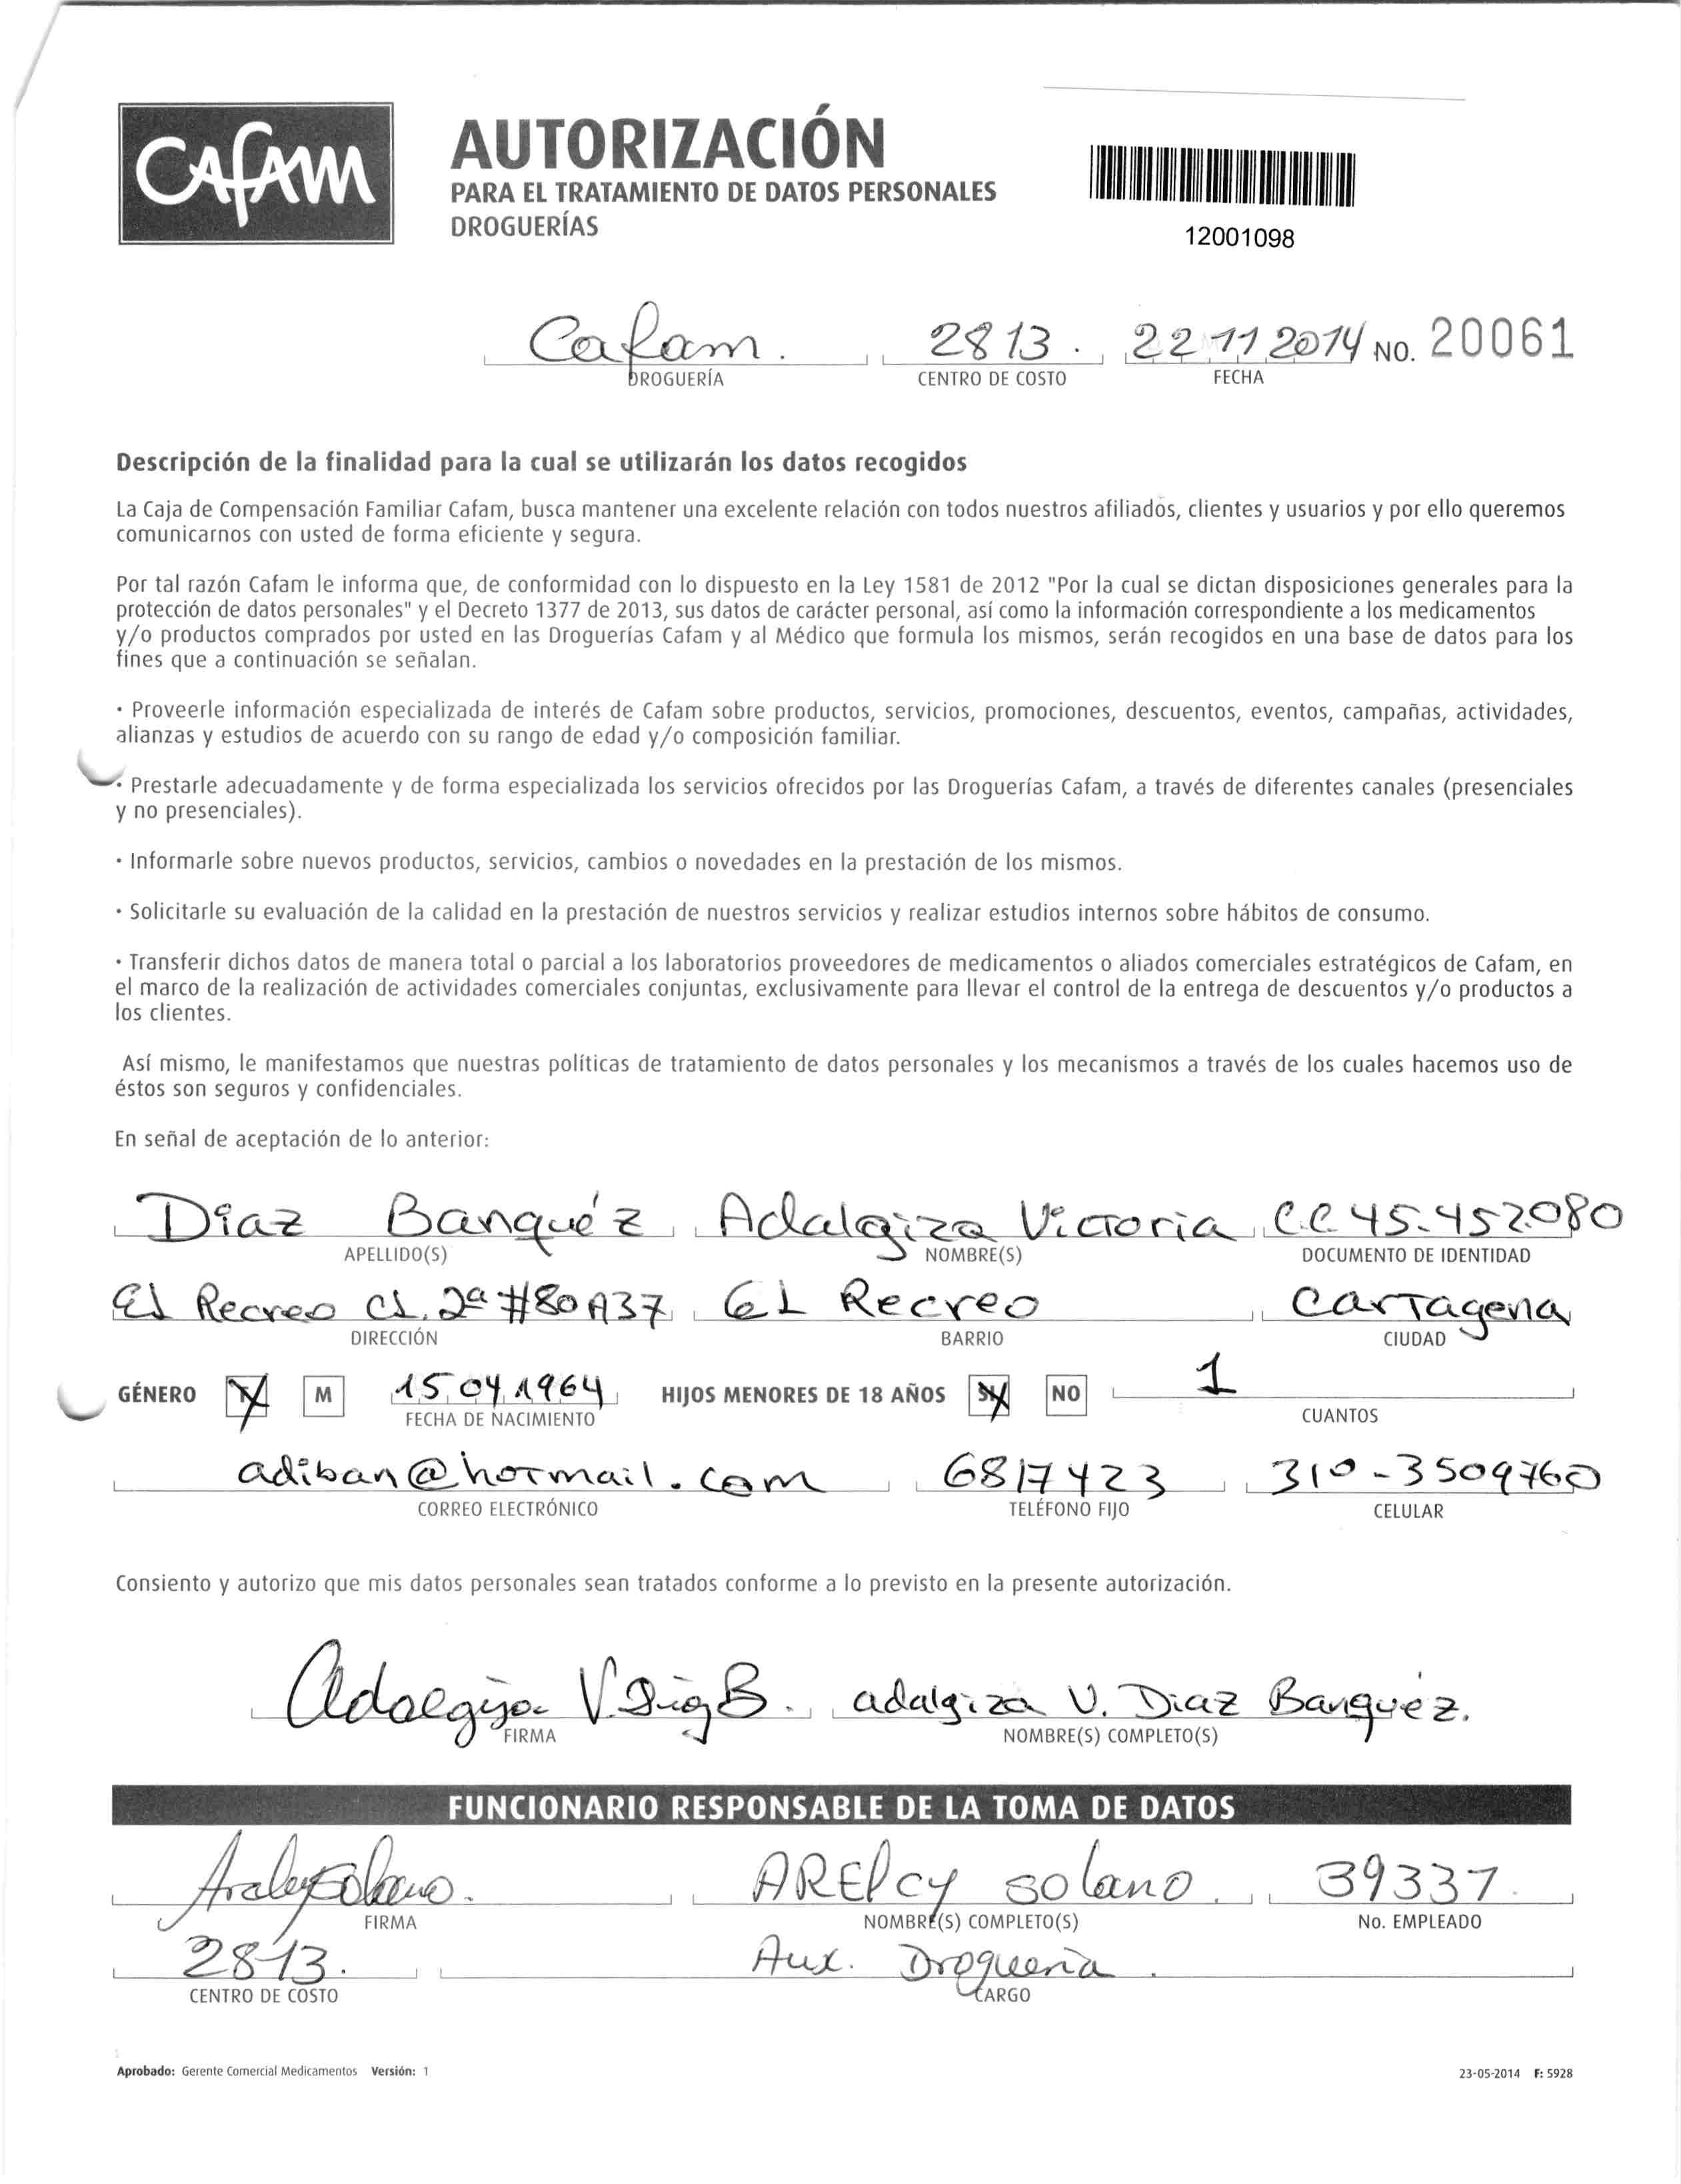 CAFAM
AUTORIZACIÓN
PARA EL TRATAMIENTO DE DATOS PERSONALES
DROGUERÍAS
12001098
Cafam. 2813. 22 11 2014 NO. 20061
DROGUERÍA CENTRO DE COSTO FECHA
Descripción de la finalidad para la cual se utilizarán los datos recogidos
La Caja de Compensación Familiar Cafam, busca mantener una excelente relación con todos nuestros afiliados, clientes y usuarios y por ello queremos
comunicarnos con usted de forma eficiente y segura.
Por tal razón Cafam le informa que, de conformidad con lo dispuesto en la Ley 1581 de 2012 "Por la cual se dictan disposiciones generales para la
protección de datos personales" y el Decreto 1377 de 2013, sus datos de carácter personal, así como la información correspondiente a los medicamentos
y/o productos comprados por usted en las Droguerías Cafam y al Médico que formula los mismos, serán recogidos en una base de datos para los
fines que a continuación se señalan.
· Proveerle información especializada de interés de Cafam sobre productos, servicios, promociones, descuentos, eventos, campañas, actividades,
alianzas y estudios de acuerdo con su rango de edad y/o composición familiar.
· Prestarle adecuadamente y de forma especializada los servicios ofrecidos por las Droguerías Cafam, a través de diferentes canales (presenciales
y no presenciales).
· Informarle sobre nuevos productos, servicios, cambios o novedades en la prestación de los mismos.
· Solicitarle su evaluación de la calidad en la prestación de nuestros servicios y realizar estudios internos sobre hábitos de consumo.
· Transferir dichos datos de manera total o parcial a los laboratorios proveedores de medicamentos o aliados comerciales estratégicos de Cafam, en
el marco de la realización de actividades comerciales conjuntas, exclusivamente para llevar el control de la entrega de descuentos y/o productos a
los clientes.
Así mismo, le manifestamos que nuestras políticas de tratamiento de datos personales y los mecanismos a través de los cuales hacemos uso de
éstos son seguros y confidenciales.
En señal de aceptación de lo anterior:
Diaz Banquéz Adalgiza Victoria C.C 45.452080
APELLIDO(S) NOMBRE(S) DOCUMENTO DE IDENTIDAD
El Recreo CL. 2ª #80A37 EL Recreo Cartagena
DIRECCIÓN BARRIO CIUDAD
GÉNERO M 15 04 1964 HIJOS MENORES DE 18 AÑOS SI NO 1
FECHA DE NACIMIENTO CUANTOS
adiban@hotmail.com 6817423 310-3509760
CORREO ELECTRÓNICO TELÉFONO FIJO CELULAR
Consiento y autorizo que mis datos personales sean tratados conforme a lo previsto en la presente autorización.
Adalgiza V. Diaz B. adalgiza V. Diaz Banquéz.
FIRMA NOMBRE(S) COMPLETO(S)
FUNCIONARIO RESPONSABLE DE LA TOMA DE DATOS
ARElcy solano. 39337.
FIRMA NOMBRE(S) COMPLETO(S) No. EMPLEADO
2813. Aux. Drogueria.
CENTRO DE COSTO CARGO
Aprobado: Gerente Comercial Medicamentos Versión: 1 23-05-2014 F: 5928